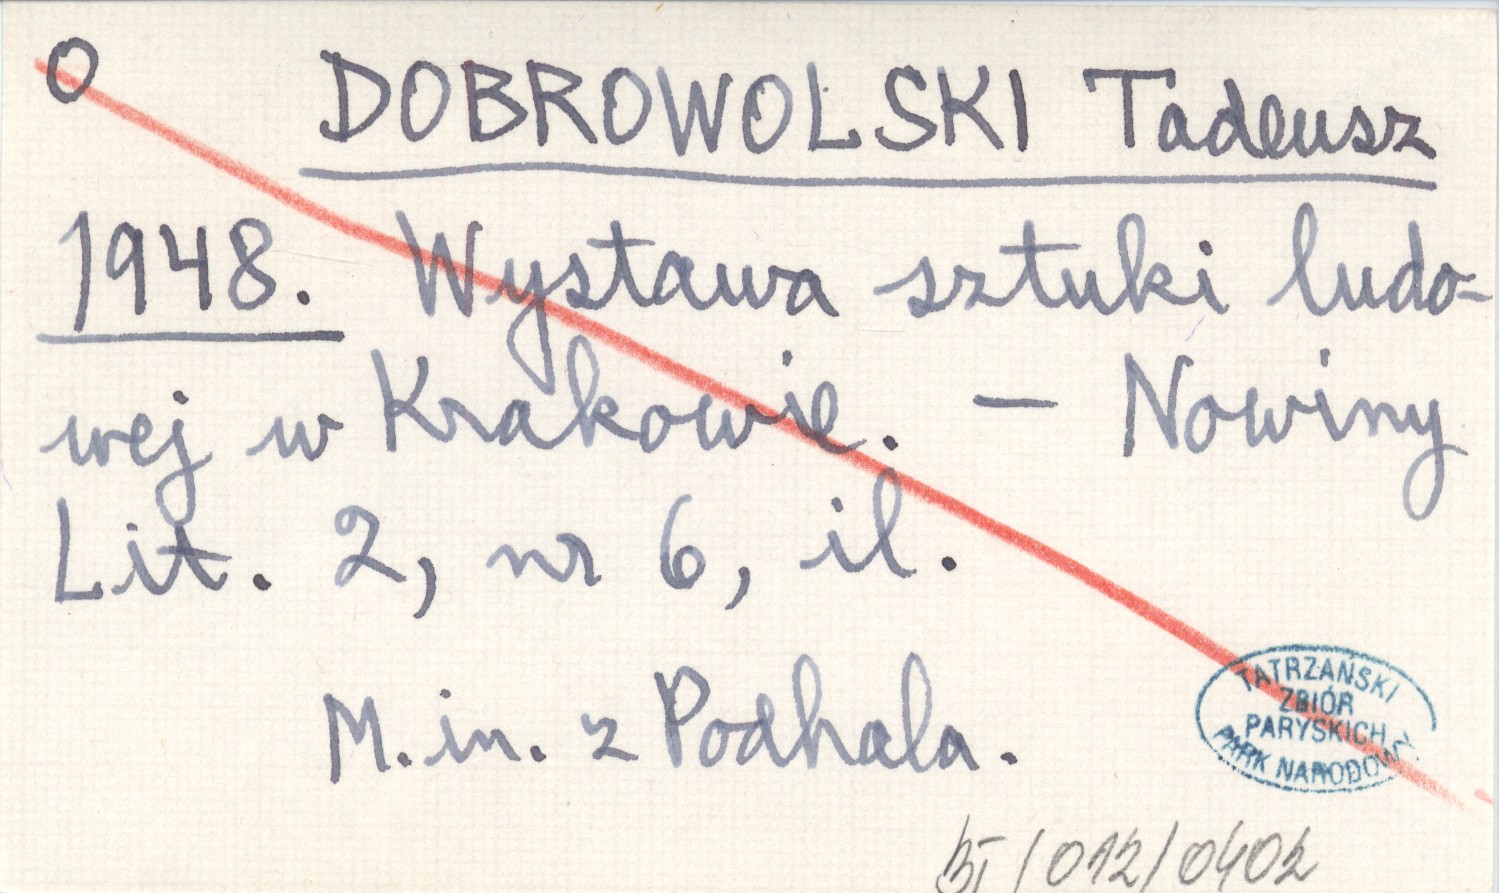 O DOBROWOLSKI Tadeusz
1948. Wystawa sztuki ludo-
wej w Krakowie. — Nowiny
Lit. 2, nr 6, il.
M. in. z Podhala.
TATRZAŃSKI
ZBIÓR
PARYSKICH
PARK NARODOWY
BT/012/0402